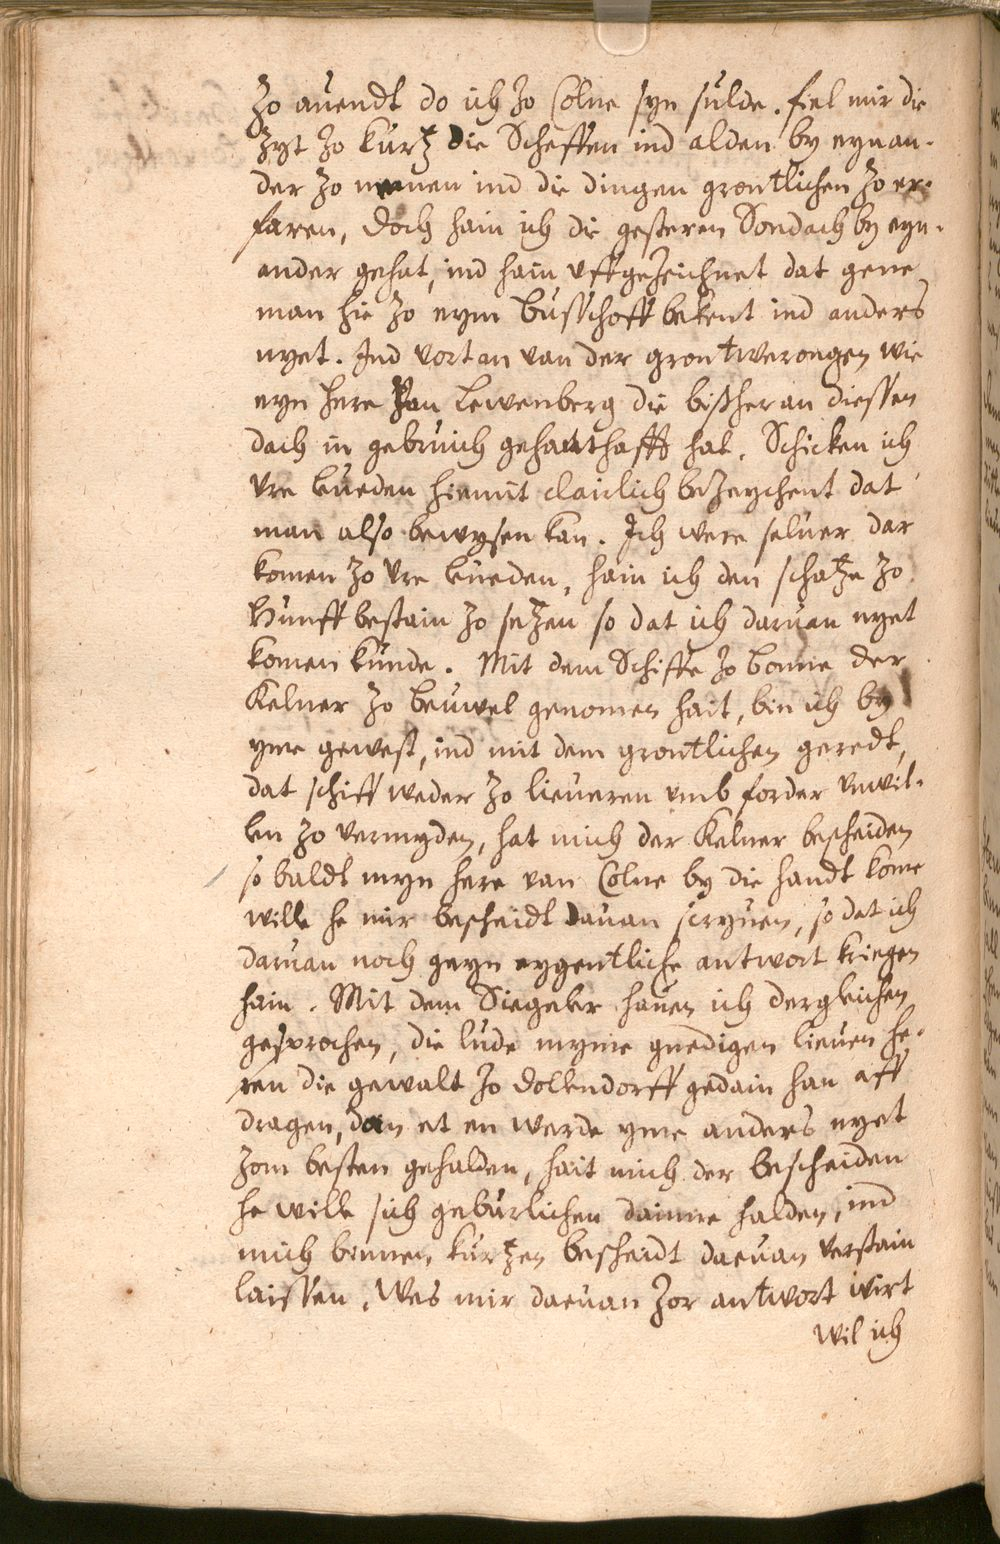 Zo auendt do ich Zo Colne syn sulde. fiel mir die
Zyt Zo kurtz die Scheffen ind alden by eynan-
der zo nemen ind die dingen grontlichen Zo er-
faren, doch hain ich die gesteren Sondach by eyn-
ander gehat, ind hain uffgezeichnet dat gene
man hie Zo eym busschoff bekent ind anders
nyet. Ind vort an van der grontwerongen wie
eyn here van Lewenberg die bißher an diessen
dach in gebruich gehat hait. Schicken ich
Vre Lueden hiemit clairlich bezeychent dat
man also bewysen kan. Ich were seluer dar
komen Zo Vre Lueden, hain ich den schatze Zo
Hunff bestain Zo setzen so dat ich daruan nyet
komen kunde. Mit dem Schiffe Zo bonne der
Kelner Zo beuwel genomen hait, bin ich by
yme gewest, ind mit dem grontlichen geredt,
dat schiff weder Zo lieueren umb forder unwil-
len Zo vermyden, hat mich der Kelner bescheiden
so baldt myn here van Colne by die handt kome
wille he mir bescheidt dauan scryuen, so dat ich
daruan noch geyn eygentliche antwort kriegen
hain. Mit dem Siegeler hauen ich dergleichen
gesprochen, die lude myme gnedigen lieuen he-
ren die gewalt Zo dollendorff gedain han aff
dragen, dan et en werde yme anders nyet
Zom besten gehalden, hait mich der bescheiden
he wille sich geburlichen dainne halden, ind
mich binnen kurtzen bescheidt daruan verstain
laissen. Wes mir daruan Zor antwort wirt
wil ich